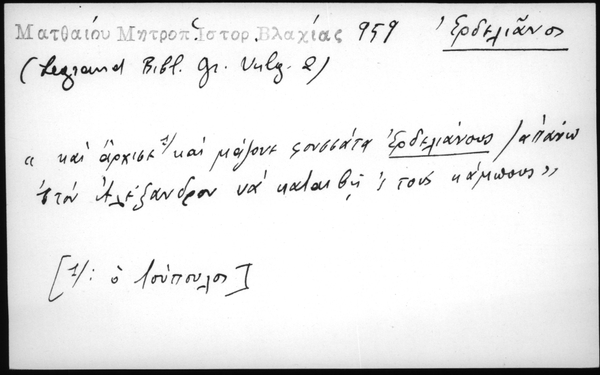 Ματθαίου Μητροπ. Ἱστορ. Βλαχίας 959 Ἐρδελιᾶνος
(Legrand Bibl. Gr. Vulg. 2)
« καὶ ἄρχισε 1/ καὶ μάζονε φουσσάτα Ἐρδελιάνους / ἀπάνω
στὸν Ἀλέξανδρον νὰ καταιβῇ ς τοὺς κάμπους »
[1/: ὁ Ἰσύπουλος]